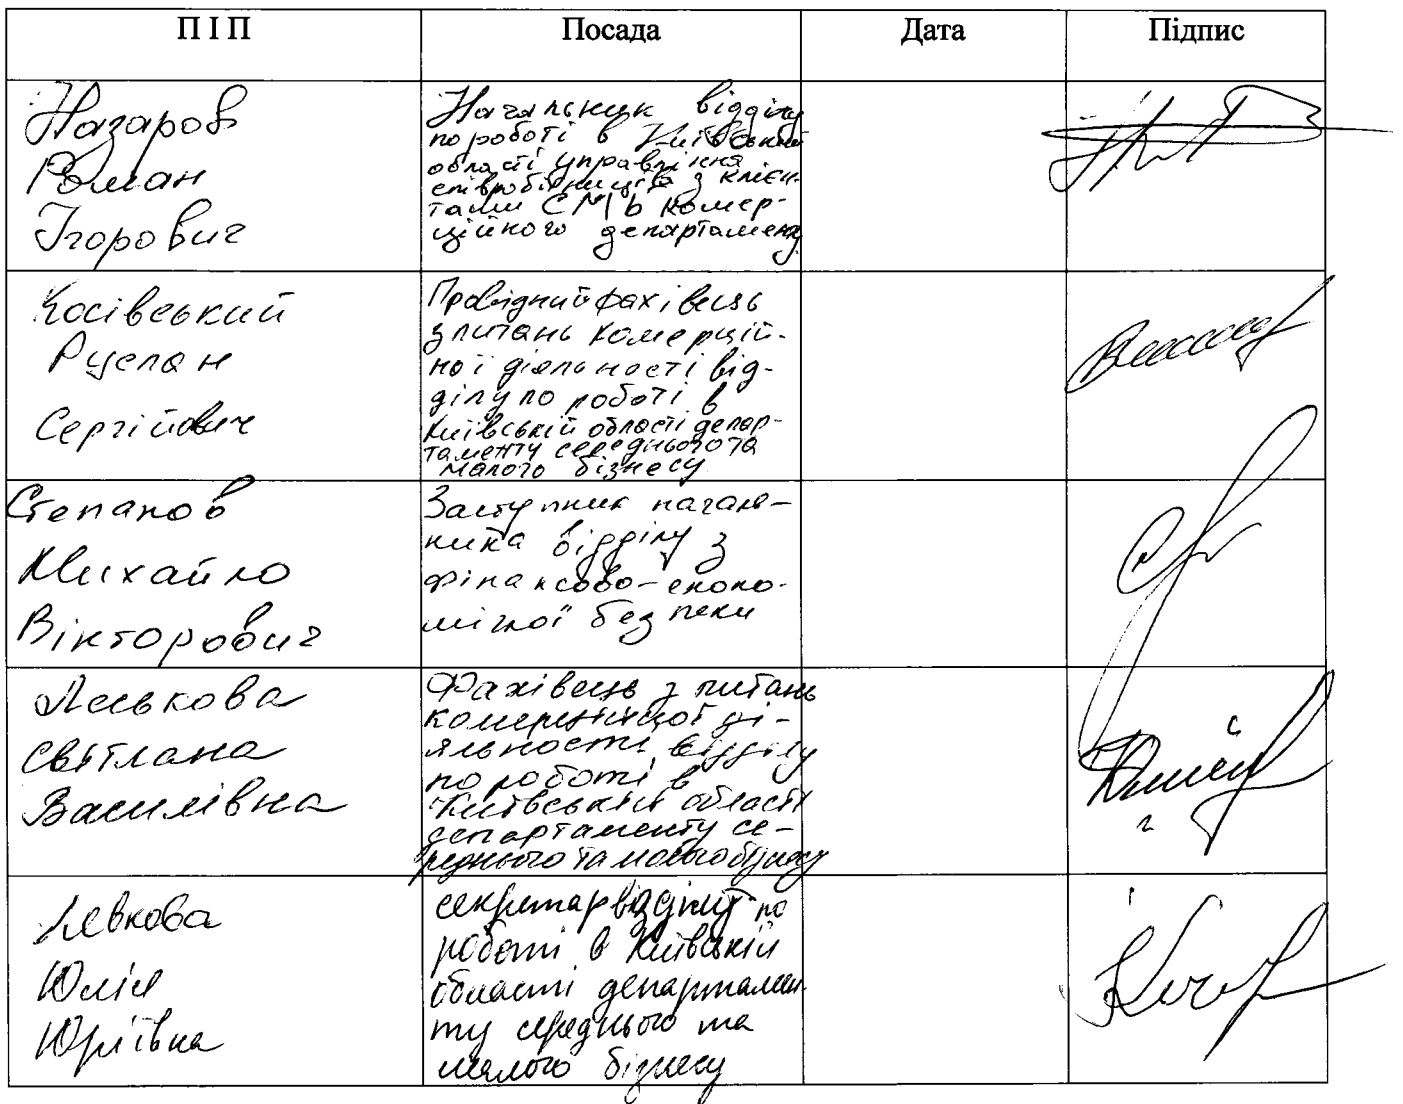 ПІП Посада Дата Підпис
Назаров
Роман
Ігорович
Начальник відділу
по роботі в Київській
області управління
співробітництва з клієн-
тами СМБ комер-
ційного департаменту
Косівський
Руслан
Сергійович
Провідний фахівець
з питань комерцій-
ної діяльності від-
ділу по роботі в
Київській області депар-
таменту середнього та
малого бізнесу
Степанов
Михайло
Вікторович
Заступник началь-
ника відділу з
фінансово-еконо-
мічної безпеки
Леськова
Світлана
Василівна
Фахівець з питань
комерційної ді-
яльності відділу
по роботі в
Київській області
департаменту се-
реднього та малого бізнесу
Левкова
Юлія
Юріївна
секретар відділу по
роботі в Київській
області департамен-
ту середнього та
малого бізнесу